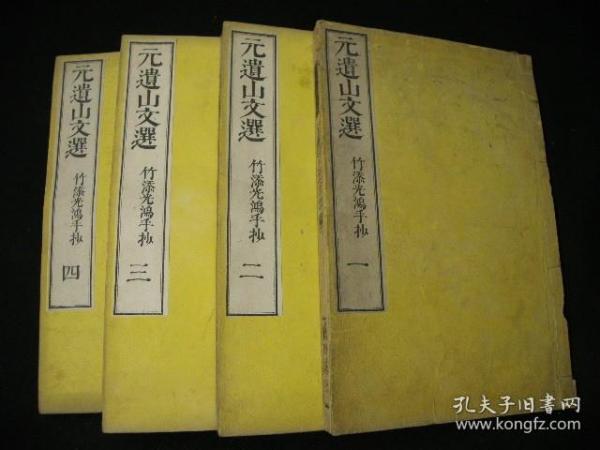 元遺山文選
竹添光鴻手抄
四
元遺山文選
竹添光鴻手抄
三
元遺山文選
竹添光鴻手抄
二
元遺山文選
竹添光鴻手抄
一
孔夫子旧書网
www.kongfz.com